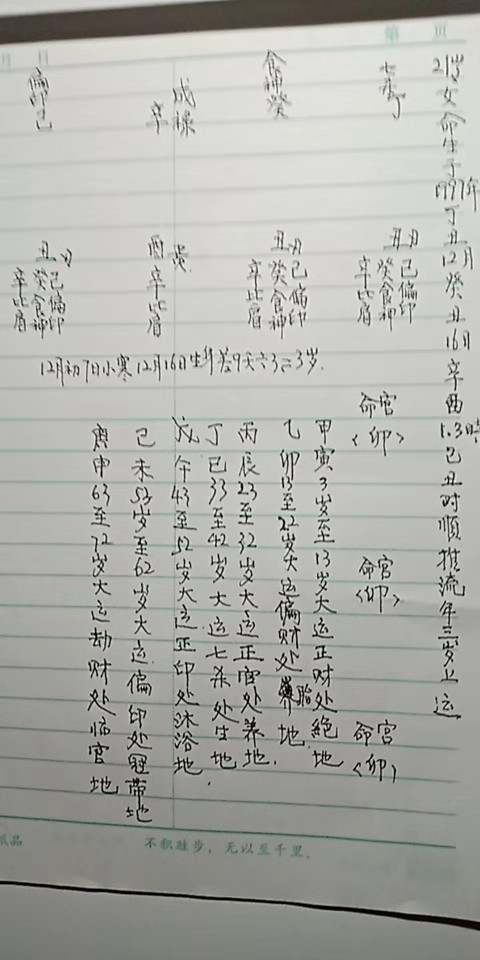 第 页
月 日
21岁女命生于1997年丁丑12月癸丑16日辛酉1.3時己丑时順推流年三岁上运
七杀丁
食神癸
戌禄
辛
偏印己
丑月
己偏印
癸食神
辛比肩
丑月
己偏印
癸食神
辛比肩
酉
辛比肩
丑月
己偏印
癸食神
辛比肩
12月初7日小寒12月16日生年差9天六3=3岁.
命宫
<卯>
命宫
<卯>
命宫
<卯>
甲寅3岁至13岁大运正财处絶地
乙卯13至22岁大运偏财处胎地.
丙辰23至32岁大运正官处养地.
丁巳33至42岁大运七杀处生地.
戊午43至52岁大运正印处沐浴地
己未53岁至62岁大运偏印处冠带地
庚申63至72岁大运劫财处临官地
不积跬步，无以至千里.
纸品